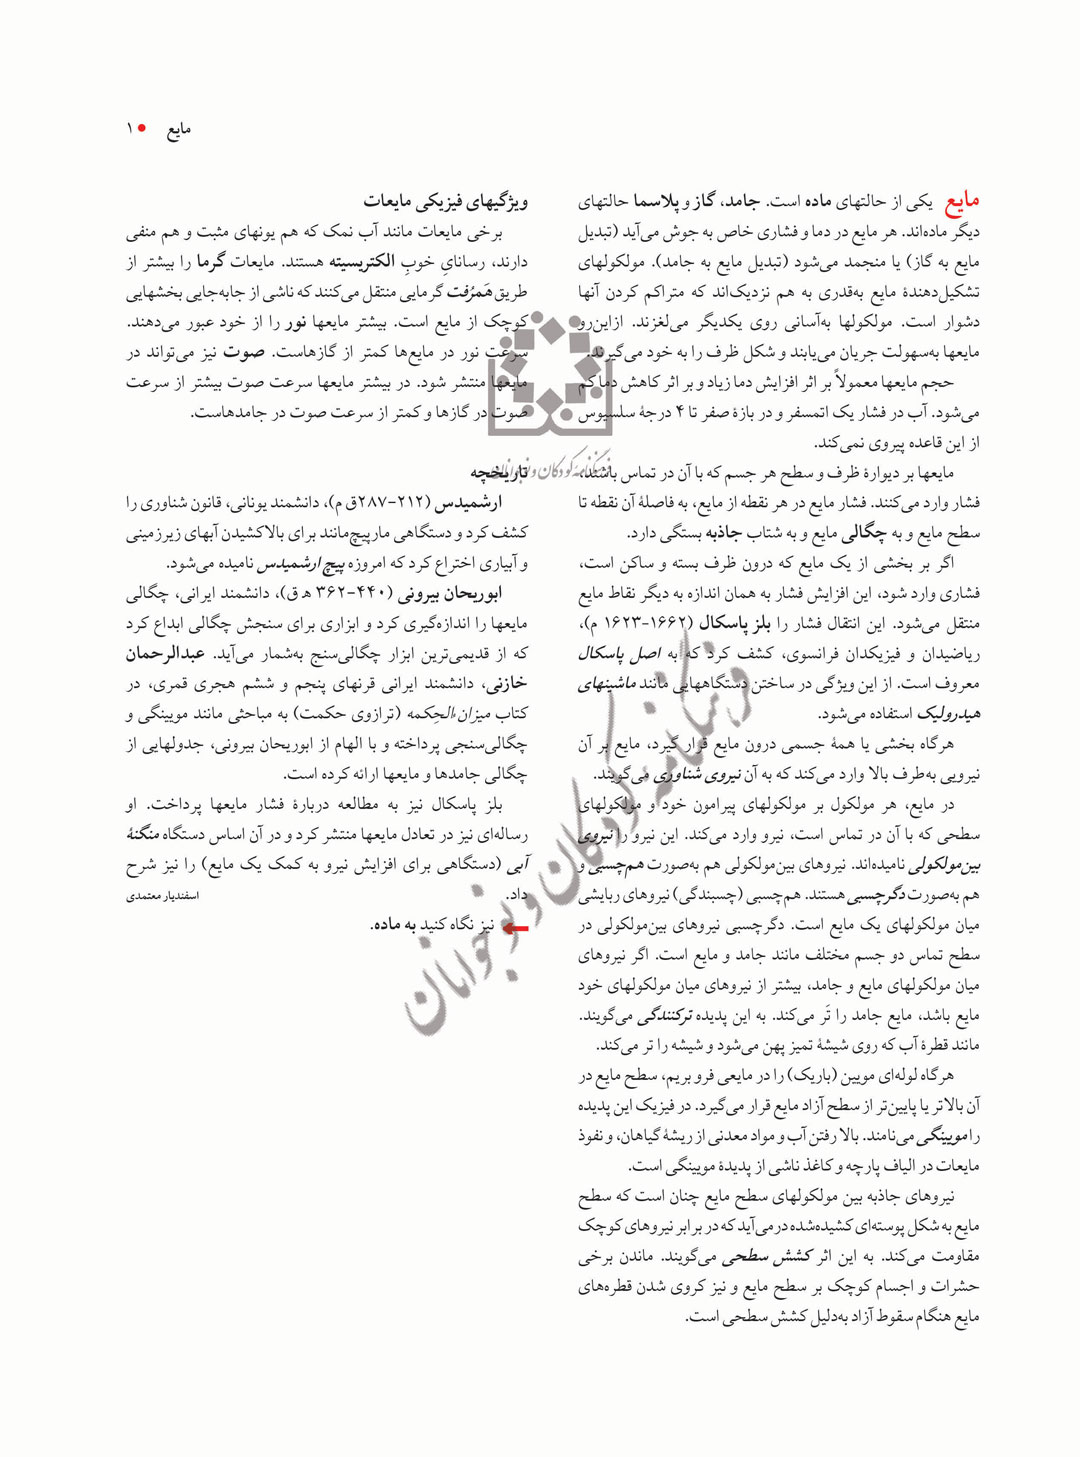 مایع • ۱
مایع یکی از حالتهای ماده است. جامد، گاز و پلاسما حالتهای
دیگر ماده‌اند. هر مایع در دما و فشاری خاص به جوش می‌آید (تبدیل
مایع به گاز) یا منجمد می‌شود (تبدیل مایع به جامد). مولکولهای
تشکیل‌دهندهٔ مایع به‌قدری به هم نزدیک‌اند که متراکم کردن آنها
دشوار است. مولکولها به‌آسانی روی یکدیگر می‌لغزند. ازاین‌رو
مایعها به‌سهولت جریان می‌یابند و شکل ظرف را به خود می‌گیرند.
حجم مایعها معمولاً بر اثر افزایش دما زیاد و بر اثر کاهش دما کم
می‌شود. آب در فشار یک اتمسفر و در بازهٔ صفر تا ۴ درجهٔ سلسیوس
از این قاعده پیروی نمی‌کند.
مایعها بر دیوارهٔ ظرف و سطح هر جسم که با آن در تماس باشند،
فشار وارد می‌کنند. فشار مایع در هر نقطه از مایع، به فاصلهٔ آن نقطه تا
سطح مایع و به چگالی مایع و به شتاب جاذبه بستگی دارد.
اگر بر بخشی از یک مایع که درون ظرف بسته و ساکن است،
فشاری وارد شود، این افزایش فشار به همان اندازه به دیگر نقاط مایع
منتقل می‌شود. این انتقال فشار را بلز پاسکال (۱۶۶۲-۱۶۲۳ م)،
ریاضیدان و فیزیکدان فرانسوی، کشف کرد که به اصل پاسکال
معروف است. از این ویژگی در ساختن دستگاههایی مانند ماشینهای
هیدرولیک استفاده می‌شود.
هرگاه بخشی یا همهٔ جسمی درون مایع قرار گیرد، مایع بر آن
نیرویی به‌طرف بالا وارد می‌کند که به آن نیروی شناوری می‌گویند.
در مایع، هر مولکول بر مولکولهای پیرامون خود و مولکولهای
سطحی که با آن در تماس است، نیرو وارد می‌کند. این نیرو را نیروی
بین‌مولکولی نامیده‌اند. نیروهای بین‌مولکولی هم به‌صورت هم‌چسبی و
هم به‌صورت دگرچسبی هستند. هم‌چسبی (چسبندگی) نیروهای ربایشی
میان مولکولهای یک مایع است. دگرچسبی نیروهای بین‌مولکولی در
سطح تماس دو جسم مختلف مانند جامد و مایع است. اگر نیروهای
میان مولکولهای مایع و جامد، بیشتر از نیروهای میان مولکولهای خود
مایع باشد، مایع جامد را تَر می‌کند. به این پدیده ترکنندگی می‌گویند.
مانند قطرهٔ آب که روی شیشهٔ تمیز پهن می‌شود و شیشه را تر می‌کند.
هرگاه لوله‌ای مویین (باریک) را در مایعی فرو بریم، سطح مایع در
آن بالاتر یا پایین‌تر از سطح آزاد مایع قرار می‌گیرد. در فیزیک این پدیده
را مویینگی می‌نامند. بالا رفتن آب و مواد معدنی از ریشهٔ گیاهان، و نفوذ
مایعات در الیاف پارچه و کاغذ ناشی از پدیدهٔ مویینگی است.
نیروهای جاذبه بین مولکولهای سطح مایع چنان است که سطح
مایع به شکل پوسته‌ای کشیده‌شده درمی‌آید که در برابر نیروهای کوچک
مقاومت می‌کند. به این اثر کشش سطحی می‌گویند. ماندن برخی
حشرات و اجسام کوچک بر سطح مایع و نیز کروی شدن قطره‌های
مایع هنگام سقوط آزاد به‌دلیل کشش سطحی است.
ویژگیهای فیزیکی مایعات
برخی مایعات مانند آب نمک که هم یونهای مثبت و هم منفی
دارند، رسانایِ خوبِ الکتریسیته هستند. مایعات گرما را بیشتر از
طریق هَمرُفت گرمایی منتقل می‌کنند که ناشی از جابه‌جایی بخشهایی
کوچک از مایع است. بیشتر مایعها نور را از خود عبور می‌دهند.
سرعت نور در مایع‌ها کمتر از گازهاست. صوت نیز می‌تواند در
مایعها منتشر شود. در بیشتر مایعها سرعت صوت بیشتر از سرعت
صوت در گازها و کمتر از سرعت صوت در جامدهاست.
تاریخچه
ارشمیدس (۲۱۲-۲۸۷ق م)، دانشمند یونانی، قانون شناوری را
کشف کرد و دستگاهی مارپیچ‌مانند برای بالاکشیدن آبهای زیرزمینی
و آبیاری اختراع کرد که امروزه پیچ ارشمیدس نامیده می‌شود.
ابوریحان بیرونی (۴۴۰-۳۶۲ ه‍ ق)، دانشمند ایرانی، چگالی
مایعها را اندازه‌گیری کرد و ابزاری برای سنجش چگالی ابداع کرد
که از قدیمی‌ترین ابزار چگالی‌سنج به‌شمار می‌آید. عبدالرحمان
خازنی، دانشمند ایرانی قرنهای پنجم و ششم هجری قمری، در
کتاب میزان‌الحِکمه (ترازوی حکمت) به مباحثی مانند مویینگی و
چگالی‌سنجی پرداخته و با الهام از ابوریحان بیرونی، جدولهایی از
چگالی جامدها و مایعها ارائه کرده است.
بلز پاسکال نیز به مطالعه دربارهٔ فشار مایعها پرداخت. او
رساله‌ای نیز در تعادل مایعها منتشر کرد و در آن اساس دستگاه منگنهٔ
آبی (دستگاهی برای افزایش نیرو به کمک یک مایع) را نیز شرح
داد. اسفندیار معتمدی
نیز نگاه کنید به ماده.
فرهنگنامهٔ کودکان و نوجوانان
فرهنگنامهٔ کودکان و نوجوانان